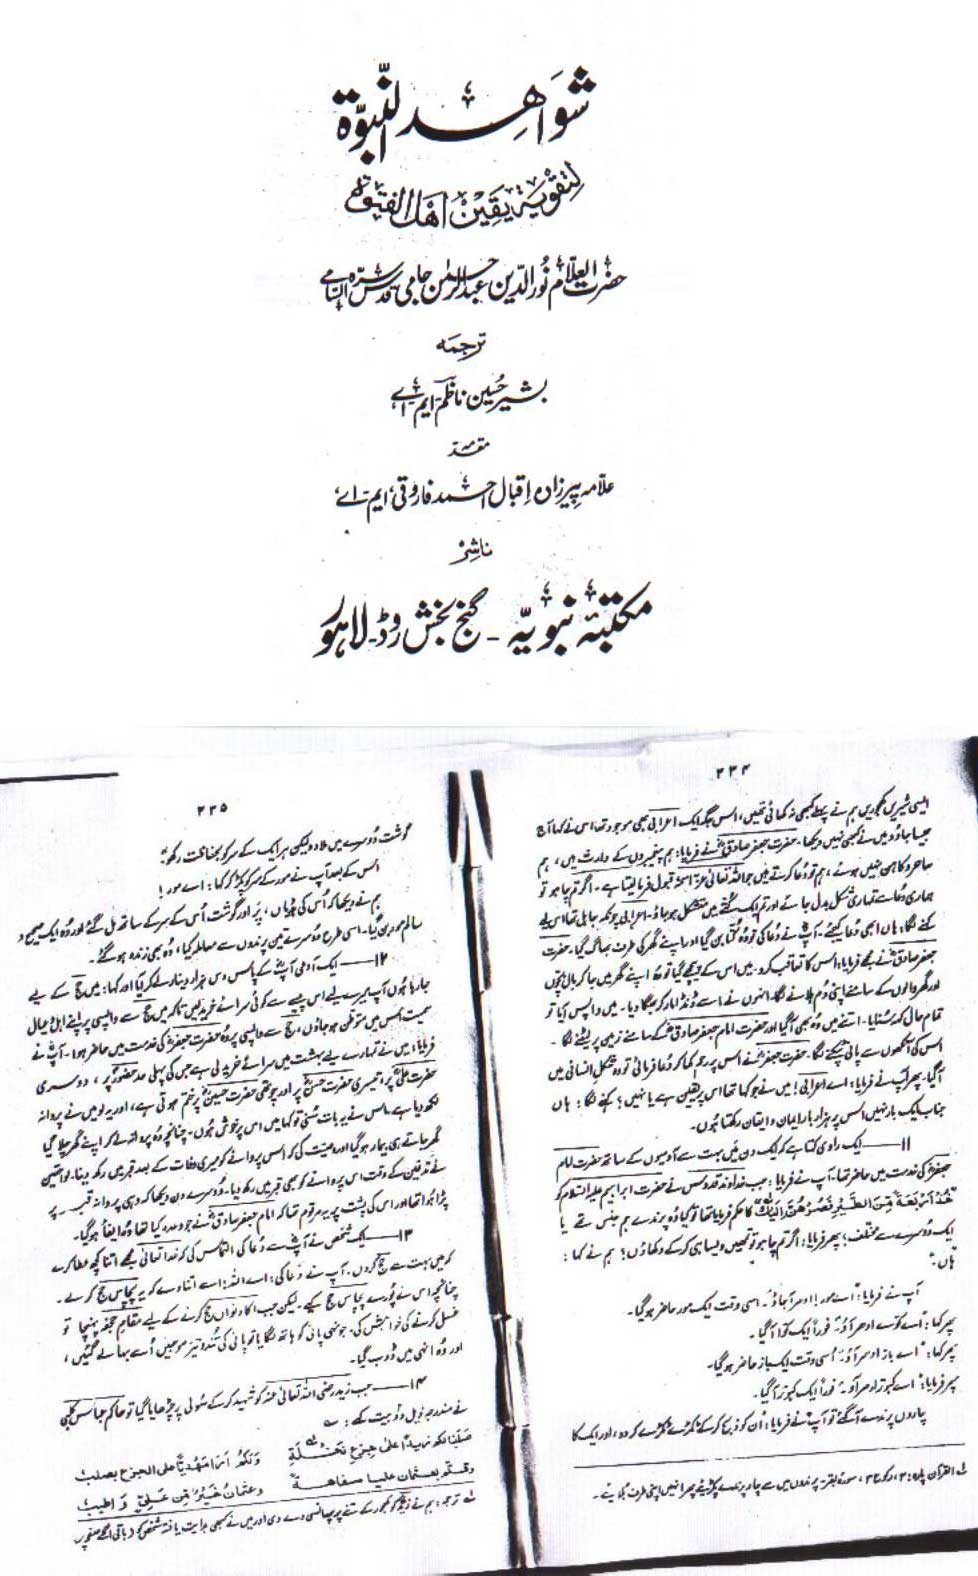 شواہد النبوّة
لتقویة یقین اھل الفتوة
حضرت العلّام نورالدین عبدالرحمٰن جامی قدس سرہ السّامی
ترجمہ
بشیر حسین ناظم، ایم اے
مقدمہ
علامہ پیرزادہ اقبال احمد فاروقی، ایم۔اے،
ناشر
مکتبہ نبویہ - گنج بخش روڈ۔ لاہور
۲۳۴
ایسی شیریں کھجوریں ہم نے پہلے کبھی نہ کھائی تھیں، اس جگہ ایک اعرابی بھی موجود تھا، اس نے کہا آج
جیسا جادو میں نے کبھی نہیں دیکھا۔ حضرت جعفر صادقؓ نے فرمایا: ہم پیغمبروں کے وارث ہیں، ہم
ساحر و کاہن نہیں ہوتے، ہم تو دعا کرتے ہیں جو اللہ تعالیٰ قبول فرما لیتا ہے۔ اگر تم چاہو تو
ہماری دعا سے تمہاری شکل بدل جائے اور تم ایک کتے میں متشکل ہو جاؤ۔ اعرابی چونکہ جاہل تھا اس لیے
کہنے لگا: ہاں ابھی دعا کیجئے۔ آپ نے دعا کی تو وہ کتا بن گیا اور اپنے گھر کی طرف بھاگ گیا۔ حضرت
جعفر صادقؓ نے مجھے فرمایا: اس کا تعاقب کرو۔ میں اس کے پیچھے گیا تو وہ اپنے گھر میں جا کر بال بچوں
اور گھر والوں کے سامنے اپنی دم ہلانے لگا۔ انہوں نے اسے ڈنڈا مار کر بھگا دیا۔ میں واپس آیا تو
تمام حال کہہ سنایا۔ اتنے میں وہ بھی آگیا اور حضرت امام جعفر صادقؓ کے سامنے زمین پر لیٹنے لگا۔
اس کی آنکھوں سے پانی ٹپکنے لگا۔ حضرت جعفرؓ نے اس پر رحم کھا کر دعا فرمائی تو وہ شکل انسانی میں
آگیا۔ پھر آپ نے فرمایا: اے اعرابی! میں نے جو کہا تھا اس پر یقین ہے یا نہیں؟ کہنے لگا: ہاں
جناب ایک بار نہیں اس پر ہزار بار ایمان و ایقان رکھتا ہوں۔
۱۱ــــ ایک راوی کہتا ہے کہ ایک دن میں بہت سے آدمیوں کے ساتھ حضرت امام
جعفرؓ کی خدمت میں حاضر تھا۔ آپ نے فرمایا: جب خداوند قدوس نے حضرت ابراہیم علیہ السلام کو
"خُذْ اَرْبَعَةً مِّنَ الطَّيْرِ فَصُرْهُنَّ اِلَيْكَ" کا حکم فرمایا تھا تو کیا وہ پرندے ہم جنس تھے یا
ایک دوسرے سے مختلف؟ پھر فرمایا: اگر تم چاہو تو تمہیں ویسا ہی کر کے دکھاؤں؟ ہم نے کہا:
ہاں۔
آپ نے فرمایا: "اے مور! ادھر آجاؤ"۔ اسی وقت ایک مور حاضر ہو گیا۔
پھر کہا: "اے کوے ادھر آؤ" فوراً ایک کوا آگیا۔
پھر کہا: "اے باز ادھر آؤ" اُسی وقت ایک باز حاضر ہو گیا۔
پھر فرمایا: "اے کبوتر ادھر آؤ۔" فوراً ایک کبوتر آگیا۔
چاروں پرندے آگئے تو آپ نے فرمایا: اُن کو ذبح کر کے ٹکڑے ٹکڑے کر دو، اور ایک کا
لے القرآن پارہ: ۳، رکوع ۳، سورہ بقرہ: پرندوں میں سے چار پرندے پکڑیئے پھر انہیں اپنی طرف بلایئے۔
۲۳۵
گوشت دوسرے میں ملا دو لیکن ہر ایک کے سر کو بحفاظت رکھو۔
اس کے بعد آپ نے مور کے سر کو پکڑ کر کہا: اے مور!
ہم نے دیکھا کہ اُس کی ہڈیاں، پر اور گوشت اُس کے سر کے ساتھ مل گئے اور وُہ ایک صحیح و
سالم مور بن گیا۔ اسی طرح دوسرے تین پرندوں سے معاملہ کیا، وہ بھی زندہ ہو گئے۔
۱۲ــــ ایک آدمی آپؓ کے پاس دس ہزار دینار لے کر آیا اور کہا: میں حج کے لیے
جا رہا ہوں آپ میرے لیے اس پیسے سے کوئی سرائے خرید لیں تاکہ میں حج سے واپسی پر اپنے اہل و عیال
سمیت اس میں متوطن ہو جاؤں، حج سے واپسی پر وہ حضرت جعفرؓ کی خدمت میں حاضر ہوا۔ آپؓ نے
فرمایا: میں نے تمہارے لیے بہشت میں سرائے خرید لی ہے جس کی پہلی حد حضورؐ پر، دوسری
حضرت علیؓ پر، تیسری حضرت حسنؓ پر اور چوتھی حضرت حسینؓ پر ختم ہوتی ہے، اور یہ لو میں نے پروانہ
لکھ دیا ہے۔ اس نے یہ بات سنی تو کہا میں اس پر خوش ہوں۔ چنانچہ وہ پروانہ لے کر اپنے گھر چلا گیا
گھر جاتے ہی بیمار ہو گیا اور وصیت کی کہ اس پروانے کو میری وفات کے بعد قبر میں رکھ دینا۔ لواحقین
نے تدفین کے وقت اس پروانے کو بھی قبر میں رکھ دیا۔ دوسرے دن دیکھا کہ وہی پروانہ قبر پر
پڑا ہوا تھا اور اس کی پشت پر یہ مرقوم تھا کہ امام جعفر صادقؓ نے جو وعدہ کیا تھا وہ ایفا ہو گیا۔
۱۳ــــ ایک شخص نے آپؓ سے دعا کی التماس کی کہ خدا تعالیٰ مجھے اتنا کچھ عطا کرے
کہ میں بہت سے حج کروں۔ آپ نے دعا کی: اے اللہ! اسے اتنا دے کہ یہ پچاس حج کرلے۔
چنانچہ اس نے پورے پچاس حج کیے۔ لیکن جب اکاونواں حج کرنے کے لیے مقام جحفہ پہنچا تو
غسل کرنے کی خواہش کی۔ جونہی پانی کو ہاتھ لگایا تو پانی کی تند و تیز موجیں اُسے بہا لے گئیں،
اور وُہ انہی میں ڈوب گیا۔
۱۴ــــ جب زید رضی اللہ تعالیٰ عنہ کو شہید کر کے سُولی پر چڑھایا گیا تو حاکم عباس کلبی
نے مندرجہ ذیل دو بیت کہے:
صلبنا لکم زیداً علیٰ جذع نخلةٍ ولم ار مهدیاً علی الجذع یصلب
وقستم بعثمان علیاً سفاھةً وعثمان خیرٌ من علیٍّ و اطیب
لے ترجمہ: ہم نے زیدؓ کو کھجور کے تنے پر پھانسی دے دی اور میں نے کبھی ہدایت یافتہ شخص کو (باقی اگلے صفحہ پر